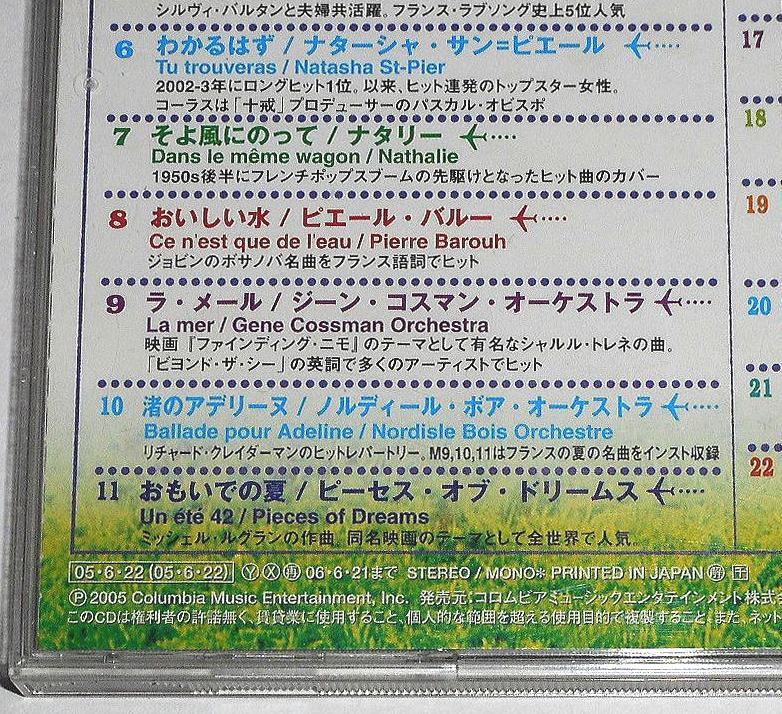 シルヴィ・バルタンと夫婦共活躍。フランス・ラブソング史上5位人気
6 わかるはず / ナターシャ・サン=ピエール
Tu trouveras / Natasha St-Pier
2002-3年にロングヒット1位。以来、ヒット連発のトップスター女性。
コーラスは「十戒」プロデューサーのパスカル・オビスポ
7 そよ風にのって / ナタリー
Dans le même wagon / Nathalie
1950s後半にフレンチポップスブームの先駆けとなったヒット曲のカバー
8 おいしい水 / ピエール・バルー
Ce n'est que de l'eau / Pierre Barouh
ジョビンのボサノバ名曲をフランス語詞でヒット
9 ラ・メール / ジーン・コスマン・オーケストラ
La mer / Gene Cossman Orchestra
映画『ファインディング・ニモ』のテーマとして有名なシャルル・トレネの曲。
「ビヨンド・ザ・シー」の英詞で多くのアーティストでヒット
10 渚のアデリーヌ / ノルディール・ボア・オーケストラ
Ballade pour Adeline / Nordisle Bois Orchestre
リチャード・クレイダーマンのヒットレパートリー。M9,10,11はフランスの夏の名曲をインスト収録
11 おもいでの夏 / ピーセス・オブ・ドリームス
Un été 42 / Pieces of Dreams
ミッシェル・ルグランの作曲。同名映画のテーマとして全世界で人気。
17
18
19
20
21
22
05・6・22 (05・6・22) Ⓨ Ⓧ 06・6・21まで STEREO / MONO* PRINTED IN JAPAN
Ⓟ2005 Columbia Music Entertainment, Inc. 発売元:コロムビアミュージックエンタテインメント株式会
このCDは権利者の許諾無く、賃貸業に使用すること、個人的な範囲を超える使用目的で複製すること、また、ネット